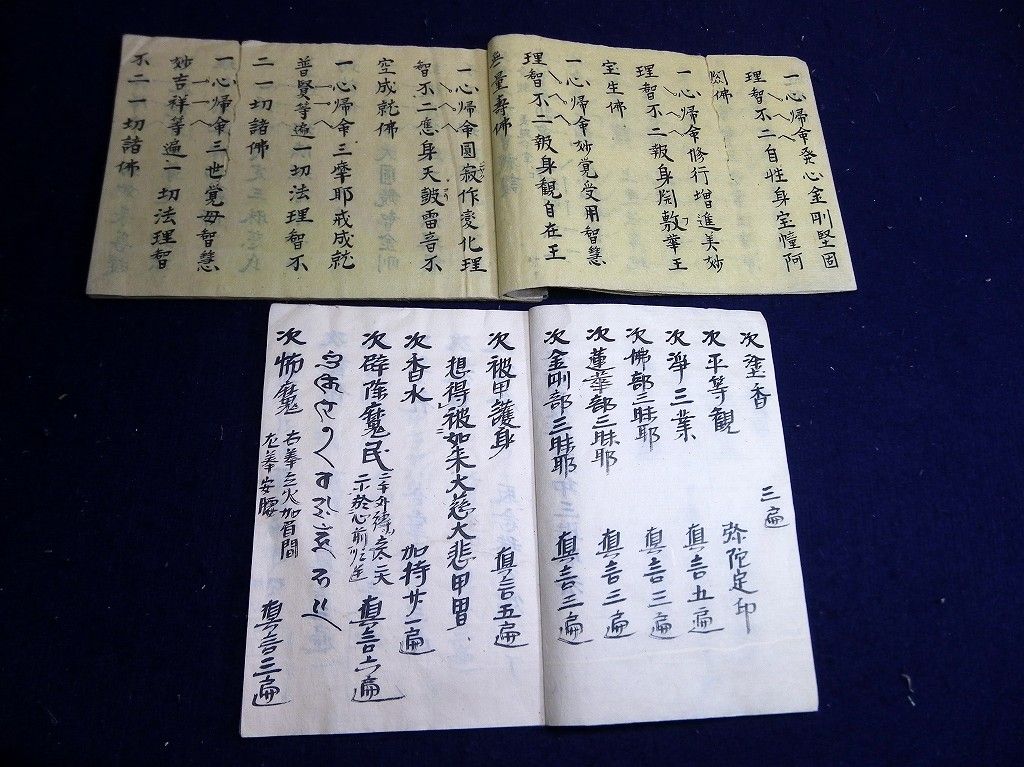 一心帰命発心金剛堅固
理智不二自性身宝憧阿
閦佛
一心帰命修行增進美妙
理智不二報身開敷華王
宝生佛
一心帰命妙覚受用智慧
理智不二報身観自在王
無量寿佛
一心帰命圓寂作変化理
智不二應身天皷雷音不
空成就佛
一心帰命三摩耶戒成就
普賢等遍一切法理智不
二一切諸佛
一心帰命三世覚母智慧
妙吉祥等遍一切法理智
不二一切諸佛
次塗香 三遍
次平等観 弥陀定印
次浄三業 真言五遍
次佛部三昧耶 真言三遍
次蓮華部三昧耶 真言三遍
次金剛部三昧耶 真言三遍
次被甲護身 真言五遍
想得被如来大慈大悲甲冑
次香水 加持廿一遍
次辟除魔民 真言六遍
次怖魔 右拳立火加眉間 左拳安腰 真言三遍